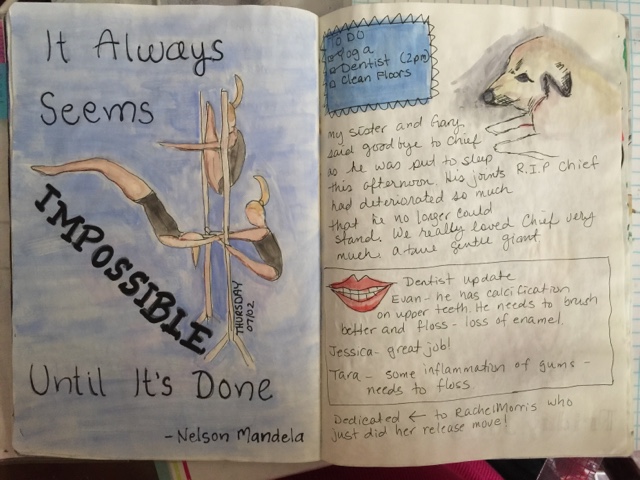 It Always
Seems
IMPOSSIBLE
THURSDAY
07/02
Until It's Done
-Nelson Mandela
TO DO
Yoga
Dentist (2pm)
Clean Floors
my sister and Gary
said goodbye to Chief
as he was put to sleep
this afternoon. His joints
R.I.P Chief
had deteriorated so much
that he no longer could
stand. We really loved Chief very
much a true gentle giant
Dentist update
Evan - he has calcification
on upper teeth. He needs to brush
better and floss - loss of enamel.
Jessica - great job!
Tara - some inflammation of gums -
needs to floss
Dedicated ← to Rachel Morris who
just did her release move!